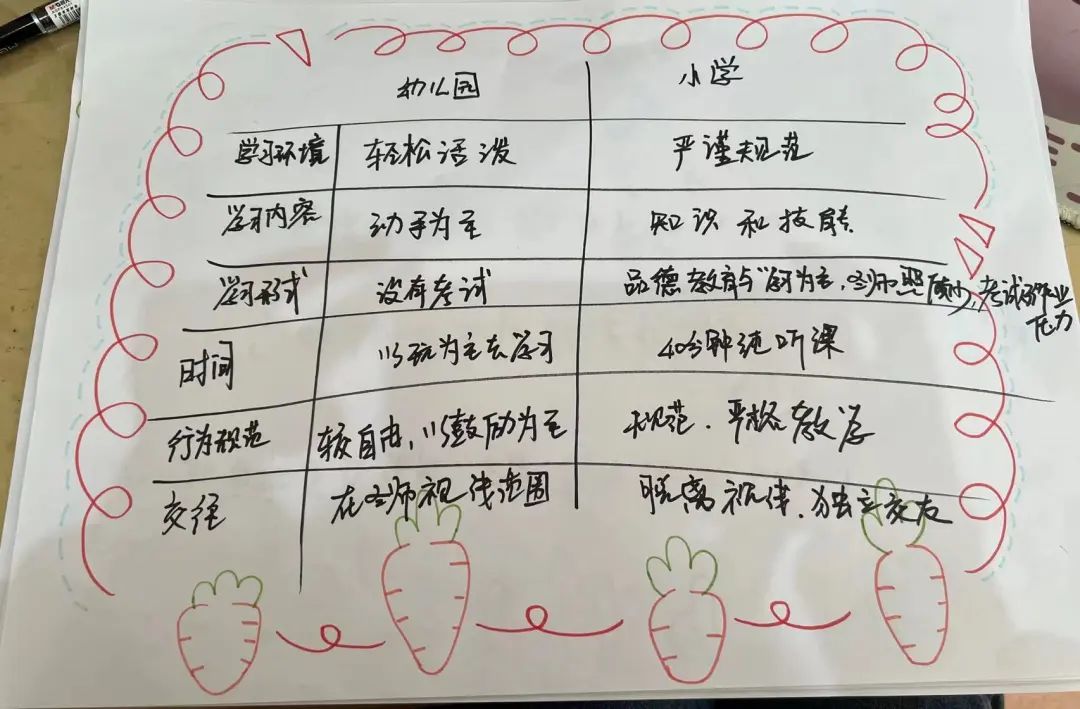 幼儿园 小学
学习环境 轻松活泼 严谨规范
学习内容 动手为主 知识和技能
学习形式 没有考试 品德教育与学习为主,老师照顾少,考试与作业
压力
时间 以玩为主去学习 40分钟纯听课
行为规范 较自由,以鼓励为主 规范.严格教学
交往 在老师视线范围 脱离视线.独立交友